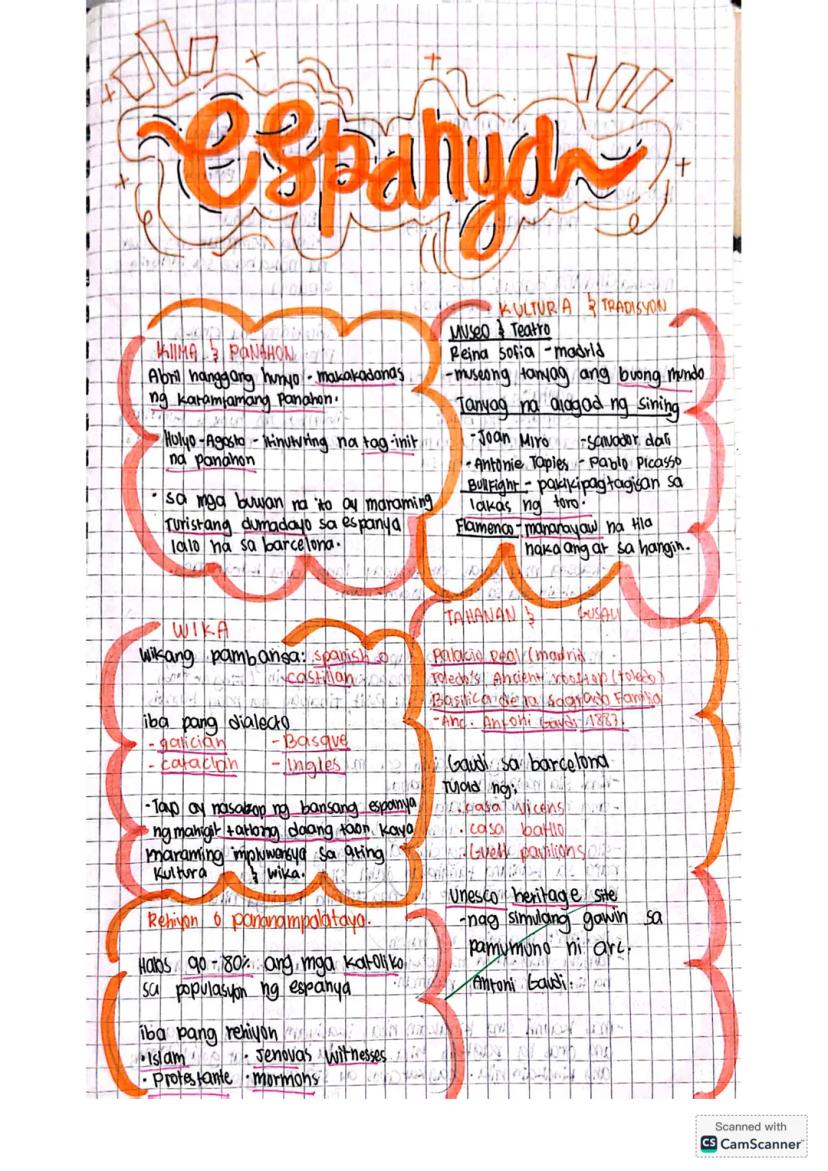 espanya
KLIMA & PANAHON
Abril hanggang hunyo - makakadanas
ng katamtamang Panahon.
Hulyo-Agosto - itinuturing na tag-init
na panahon
• sa mga buwan na ito ay maraming
turistang dumadayo sa espanya
lalo na sa barcelona.
KULTURA & TRADISYON
Museo & Teatro
Reina Sofia - madrid
- museong tanyag ang buong mundo
Tanyag na alagad ng sining
- Joan Miro - Salvador dali
• Antonie Tapies - Pablo Picasso
Bullfight - pakikipagtagisan sa
lakas ng toro.
Flamenco - mananayaw na tila
naka angat sa hangin.
WIKA
wikang pambansa: spanish o
castillan
iba pang dialecto
- galician - Basque
- cataclan - Ingles
- Tayo ay nasakop ng bansang espanya
ng mahigit tatlong daang taon kaya
maraming impluwensya sa ating
kultura & wika.
TAHANAN & GUSALI
Palacio real (madrid
Toledo's Ancient rooftop (toledo)
Basilica de la Sagrada Familia
- Anc. Antoni Gaudi 1883.
Gaudi sa barcelona
tulad ng;
. casa vicens
. casa batllo
. Guell pavilions
Unesco heritage site
- nag simulang gawin sa
pamumuno ni arc.
Antoni Gaudi.
Rehiyon o pananampalataya.
Halos 90 - 80% ang mga katoliko
sa populasyon ng espanya
iba pang rehiyon
• Islam • Jenovas witnesses
• Protestante • mormons
Scanned with
CS CamScanner